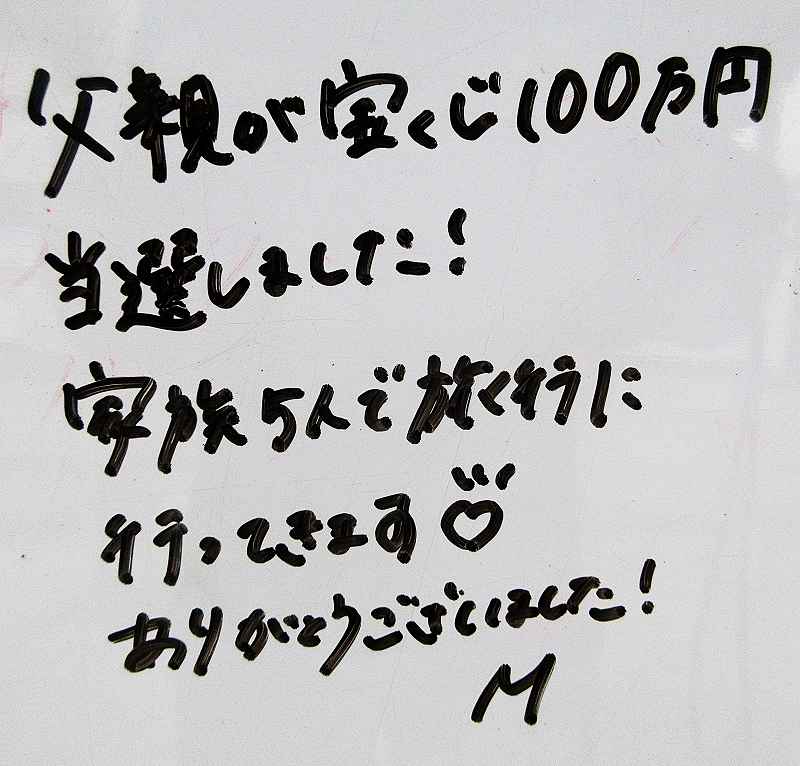 父親が宝くじ100万円
当選しました!
家族5人で旅行に
行ってきます♡
ありがとうございました!
M